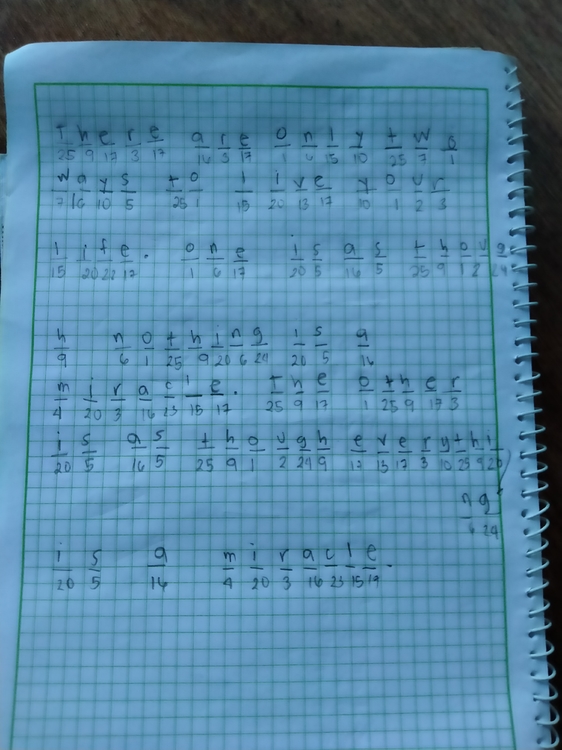 there are only two
25 9 17 3 17 16 3 17 1 6 15 10 25 7 1
ways to live your
7 16 10 5 25 1 15 20 13 17 10 1 2 3
life. one is as thoug
15 20 22 17 1 6 17 20 5 16 5 25 9 1 2 24
h nothing is a
9 6 1 25 9 20 6 24 20 5 16
miracle. the other
4 20 3 16 23 15 17 25 9 17 1 25 9 17 3
is as though everythi
20 5 16 5 25 9 1 2 24 9 17 13 17 3 10 25 9 20
ng
6 24
is a miracle.
20 5 16 4 20 3 16 23 15 17